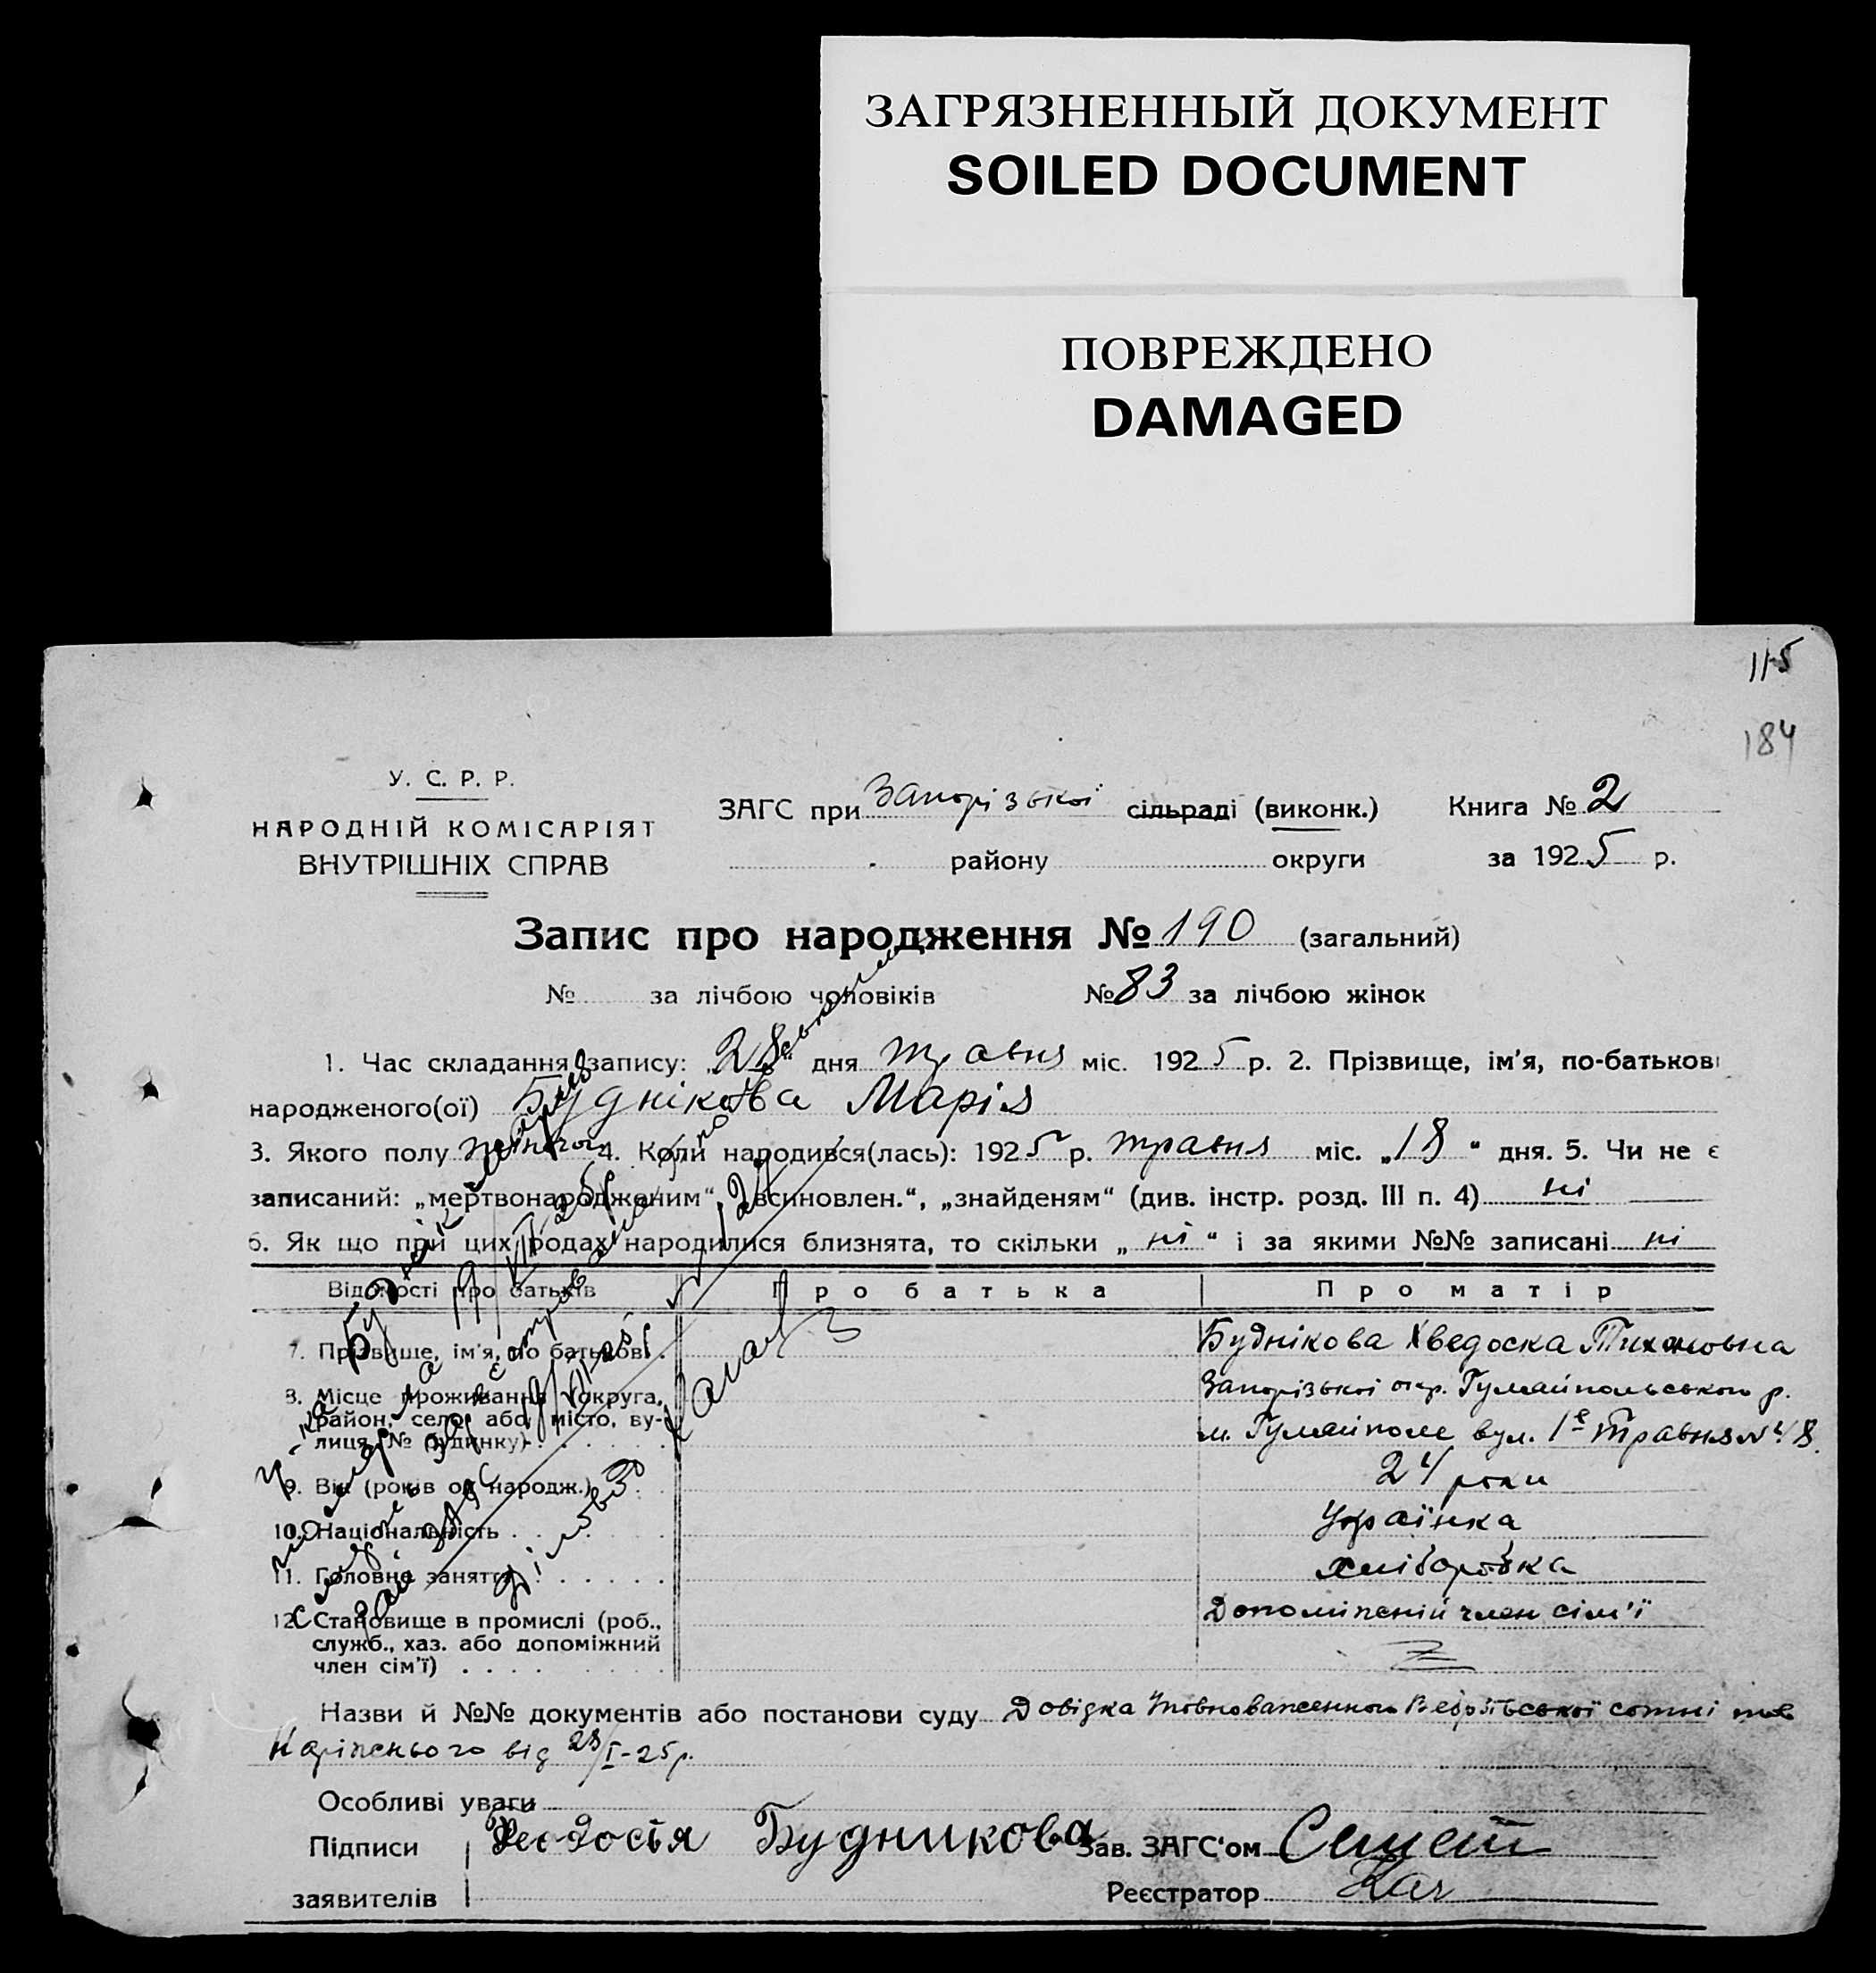 ЗАГРЯЗНЕННЫЙ ДОКУМЕНТ
SOILED DOCUMENT
ПОВРЕЖДЕНО
DAMAGED
115
184
У. С. Р. Р.
НАРОДНІЙ КОМІСАРІЯТ
ВНУТРІШНІХ СПРАВ
ЗАГС при Запорізької сільраді (виконк.) Книга № 2
району округи за 1925 р.
Запис про народження № 190 (загальний)
№ за лічбою чоловіків № 83 за лічбою жінок
1. Час складання запису: „28“ дня травня міс. 1925 р. 2. Прізвище, ім’я, по-батькові
народженого(ої) Буднікова Марія
3. Якого полу жіночого 4. Коли народився(лась): 1925 р. травня міс. „18“ дня. 5. Чи не є
записаний: „мертвонародженим“, „всиновлен.“, „знайденям“ (див. інстр. розд. III п. 4) ні
6. Як що при цих родах народилися близнята, то скільки „ні“ і за якими №№ записані ні
Відомості про батьків Про батька Про матір
7. Прізвище, ім’я, по батькові . Буднікова Хведоска Тихоновна
8. Місце проживання (округа, Запорізької окр. Гуляйпольського р.
район, село або місто, ву-
лиця, № будинку) . . . . . . м. Гуляйполе вул. 1е Травня № 48.
9. Вік (років од народж.) . . 24 роки
10. Національність . . . . . . Українка
11. Головне заняття . . . . . хліборобка
12. Становище в промислі (роб., Допоміжній член сім’ї
служб., хаз. або допоміжний
член сім’ї) . . . .
Назви й №№ документів або постанови суду Довідка сотні тов
від 28/I-25р.
Особливі уваги
Підписи Феодосія Будникова Зав. ЗАГС‘ом
заявителів Реєстратор